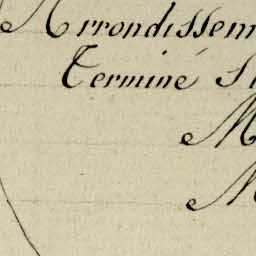 Arrondissem
Terminé S
M
M